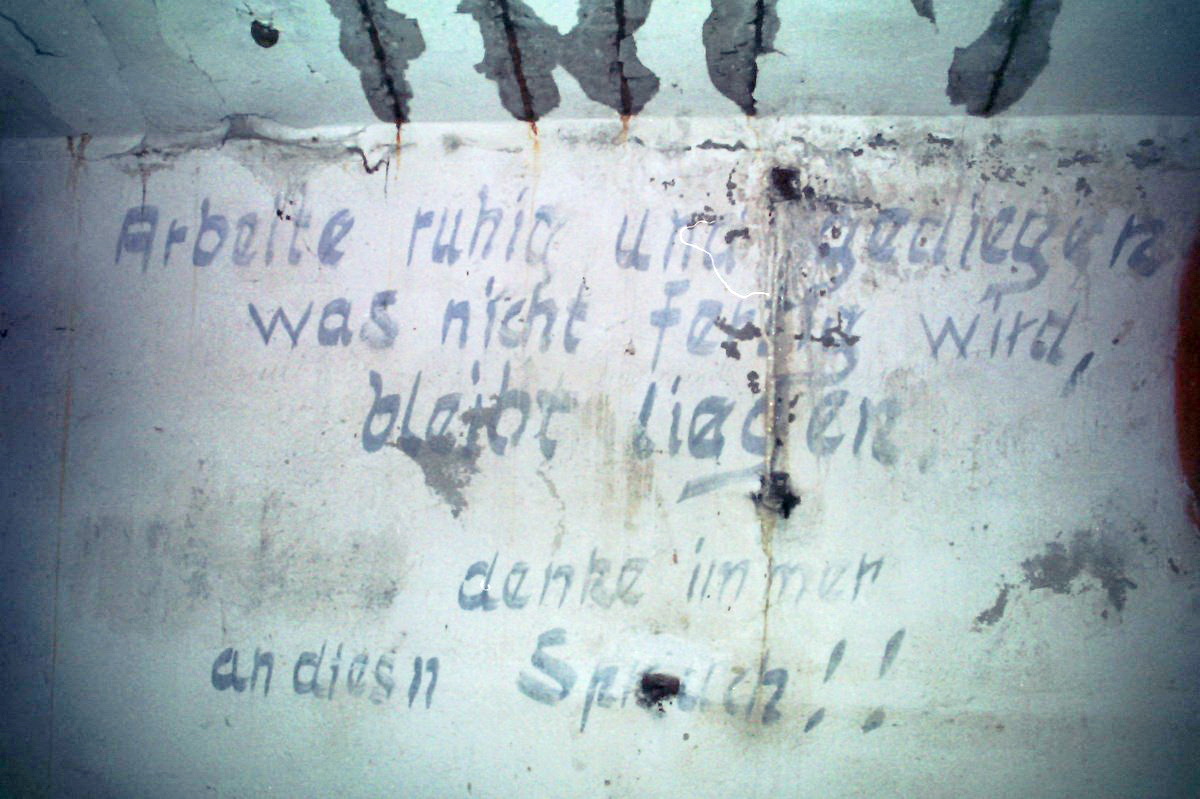 Arbeite ruhig und gediegen
was nicht fertig wird,
bleibt liegen.
denke immer
an diesn Spruch!!